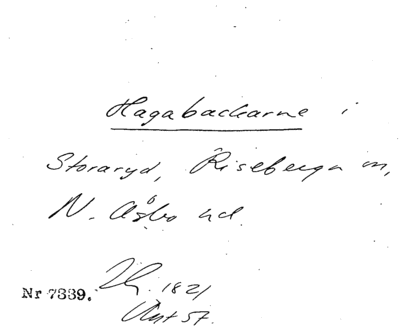 Hagabackarne i
Storaryd, Riseberga sn,
N. Åsbo hd.
Nr 7339. 1821